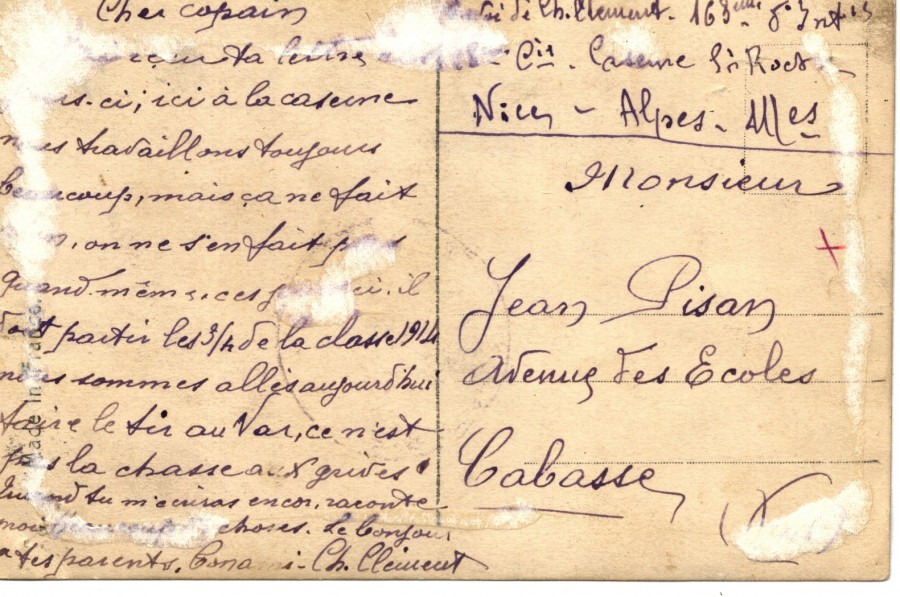 Cher copain
reçu ta lettre
ci; ici à la caserne
nous travaillons toujours
beaucoup, mais ça ne fait
on ne s'en fait pas
quand même, ces il
doit partir les 3/4 de la classe 1914
nous sommes allés aujourd'hui
faire le tir au Var, ce n'est
pas la chasse aux grives
Quand tu m'écriras encor, raconte
moi beaucoup de choses. Le bonjour
à tes parents. Ch. Clément
de Ch. Clément. 163ème d'Inf
Cie. Caserne St Roch
Nice - Alpes-Mmes
Monsieur
Jean Pisan
Avenue des Ecoles
Cabasse
Made in France.